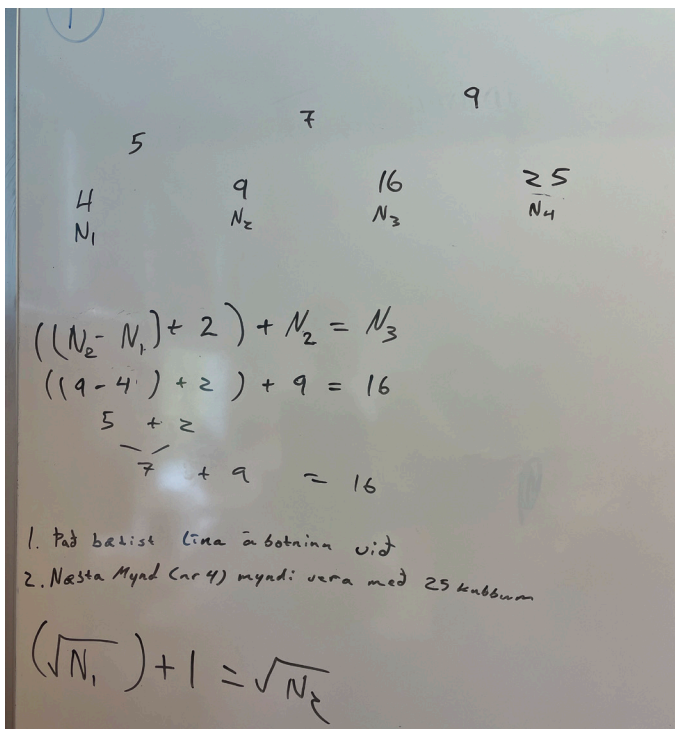 1
9
7
5
4 9 16 25
N₁ N₂ N₃ N₄
((N₂ - N₁) + 2) + N₂ = N₃
((9 - 4) + 2) + 9 = 16
5 + 2
7 + 9 = 16
1. Það bætist lína á botninn við
2. Næsta Mynd (nr 4) myndi vera með 25 kubbum
(√N₁) + 1 = √N₂